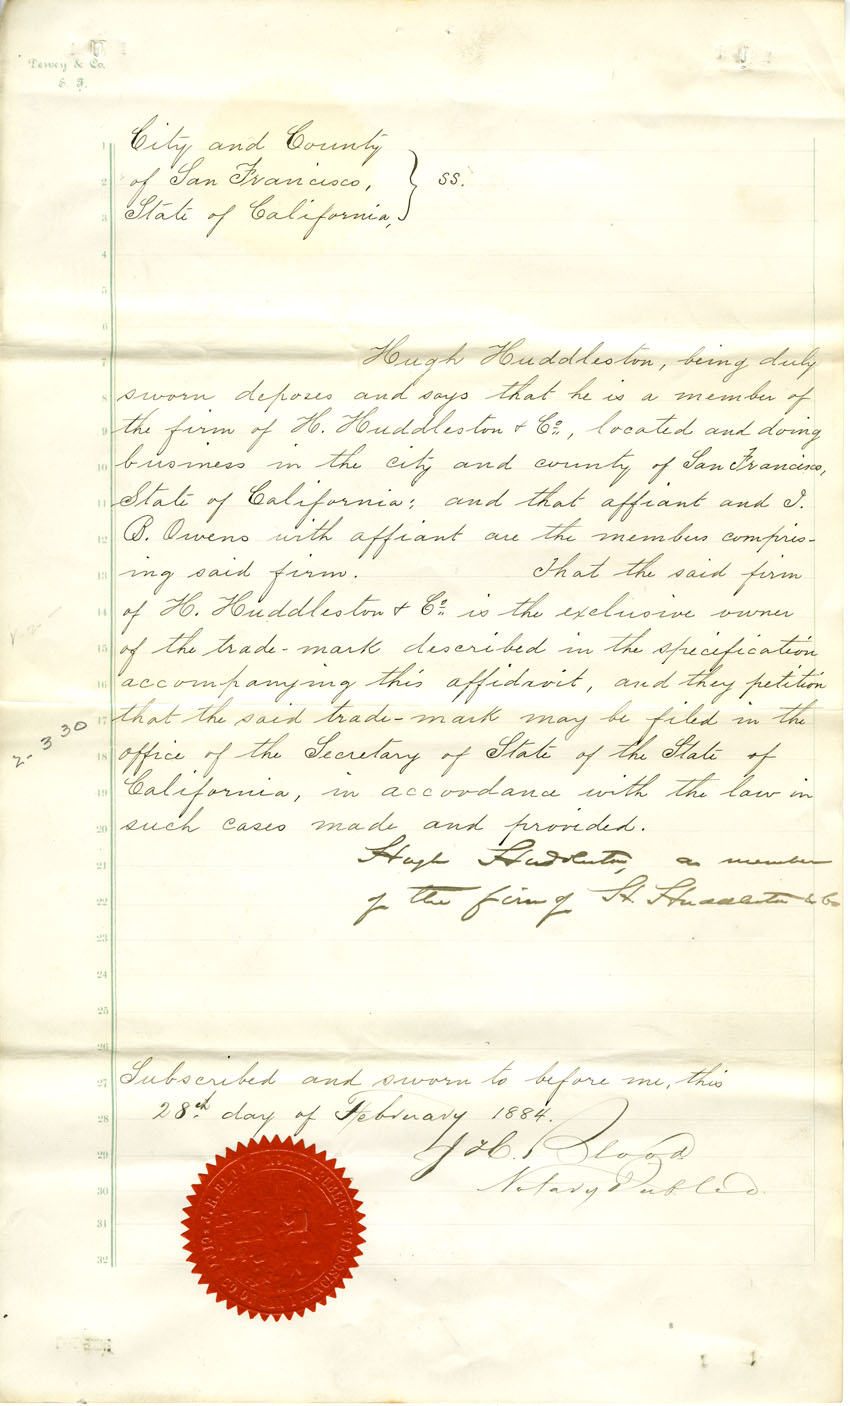 Dewey & Co.
S. F.
City and County
of San Francisco,
State of California,
} ss.
Hugh Huddleston, being duly
sworn deposes and says that he is a member of
the firm of H. Huddleston & Co., located and doing
business in the city and county of San Francisco,
State of California; and that affiant and I.
B. Owens with affiant are the members compris-
ing said firm. That the said firm
of H. Huddleston & Co. is the exclusive owner
of the trade-mark described in the specification
accompanying this affidavit, and they petition
that the said trade-mark may be filed in the
2-330
office of the Secretary of State of the State of
California, in accordance with the law in
such cases made and provided.
Hugh Huddleston, as member
of the firm of H. Huddleston & Co
Subscribed and sworn to before me, this
28th day of February 1884.
J H. Blood
Notary Public
1
2
3
4
5
6
7
8
9
10
11
12
13
14
15
16
17
18
19
20
21
22
23
24
25
26
27
28
29
30
31
32